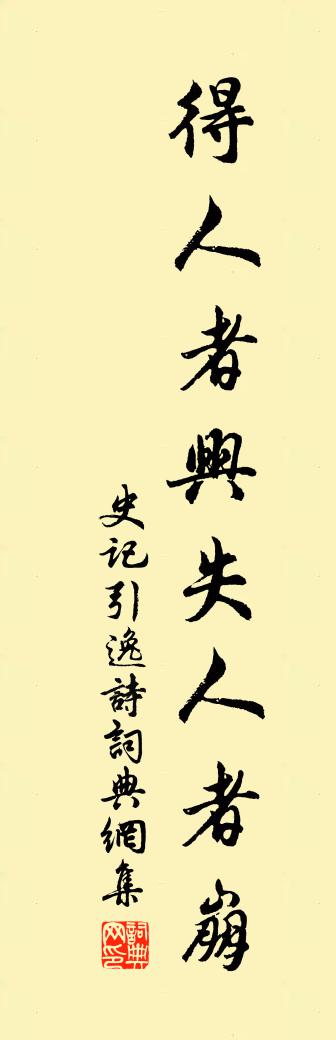 得人者興失人者崩
史記引逸詩詞典網集
詞典网印